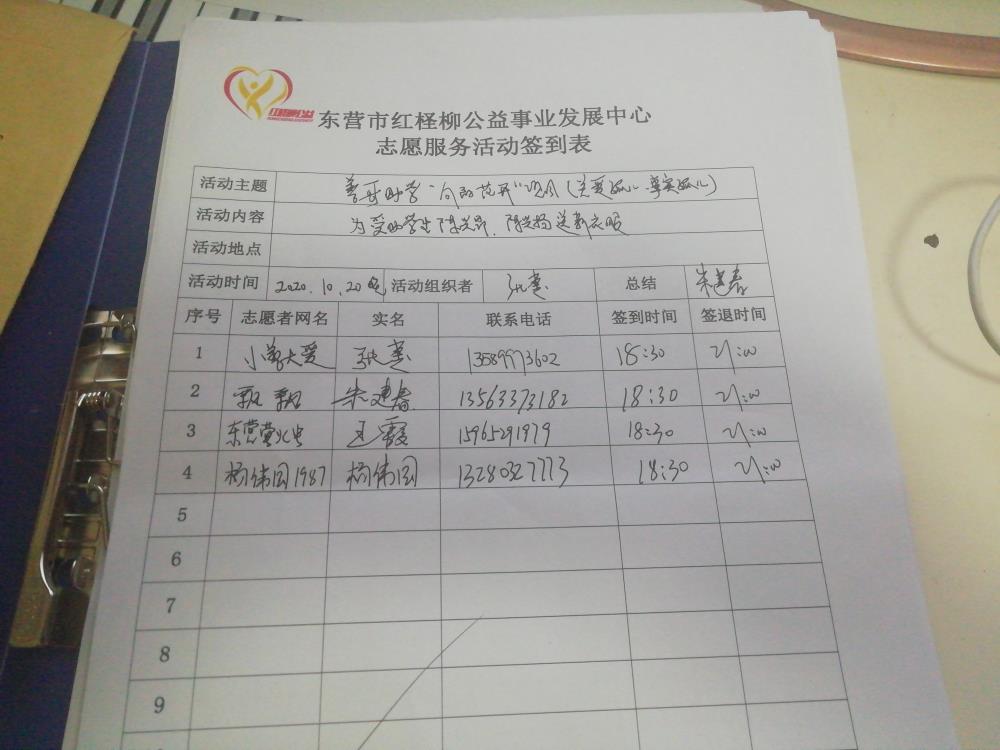 东营市红柽柳公益事业发展中心
志愿服务活动签到表
活动主题 善行助学"向阳花开"项目(关爱孤儿、事实孤儿)
活动内容 为受助学生 送新衣服
活动地点
活动时间 2020.10.20晚 活动组织者 张燕 总结 朱建春
序号 志愿者网名 实名 联系电话 签到时间 签退时间
1 小草大爱 张燕 13589973602 18:30 21:00
2 飘飘 朱建春 13563373182 18:30 21:00
3 东营萤火虫 王霞 15965291979 18:30 21:00
4 杨伟国1987 杨伟国 13280327773 18:30 21:00
5
6
7
8
9